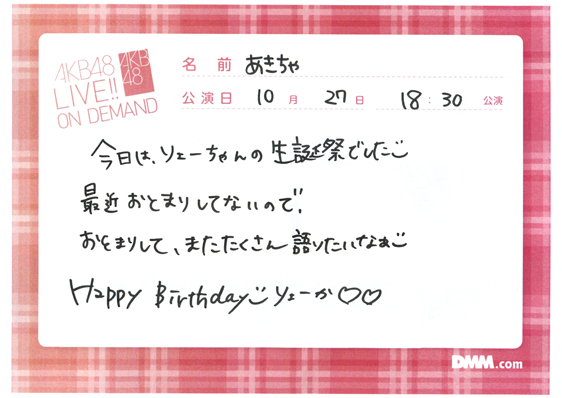 AKB48
LIVE!!
ON DEMAND
AKB
48
名前 あきちゃ
公演日 10月 27日 18:30 公演
今日は、りぇーちゃんの生誕祭でした
最近おとまりしてないので、
おとまりして、またたくさん語りたいなぁ
Happy Birthday りぇーか♡♡
DMM.com